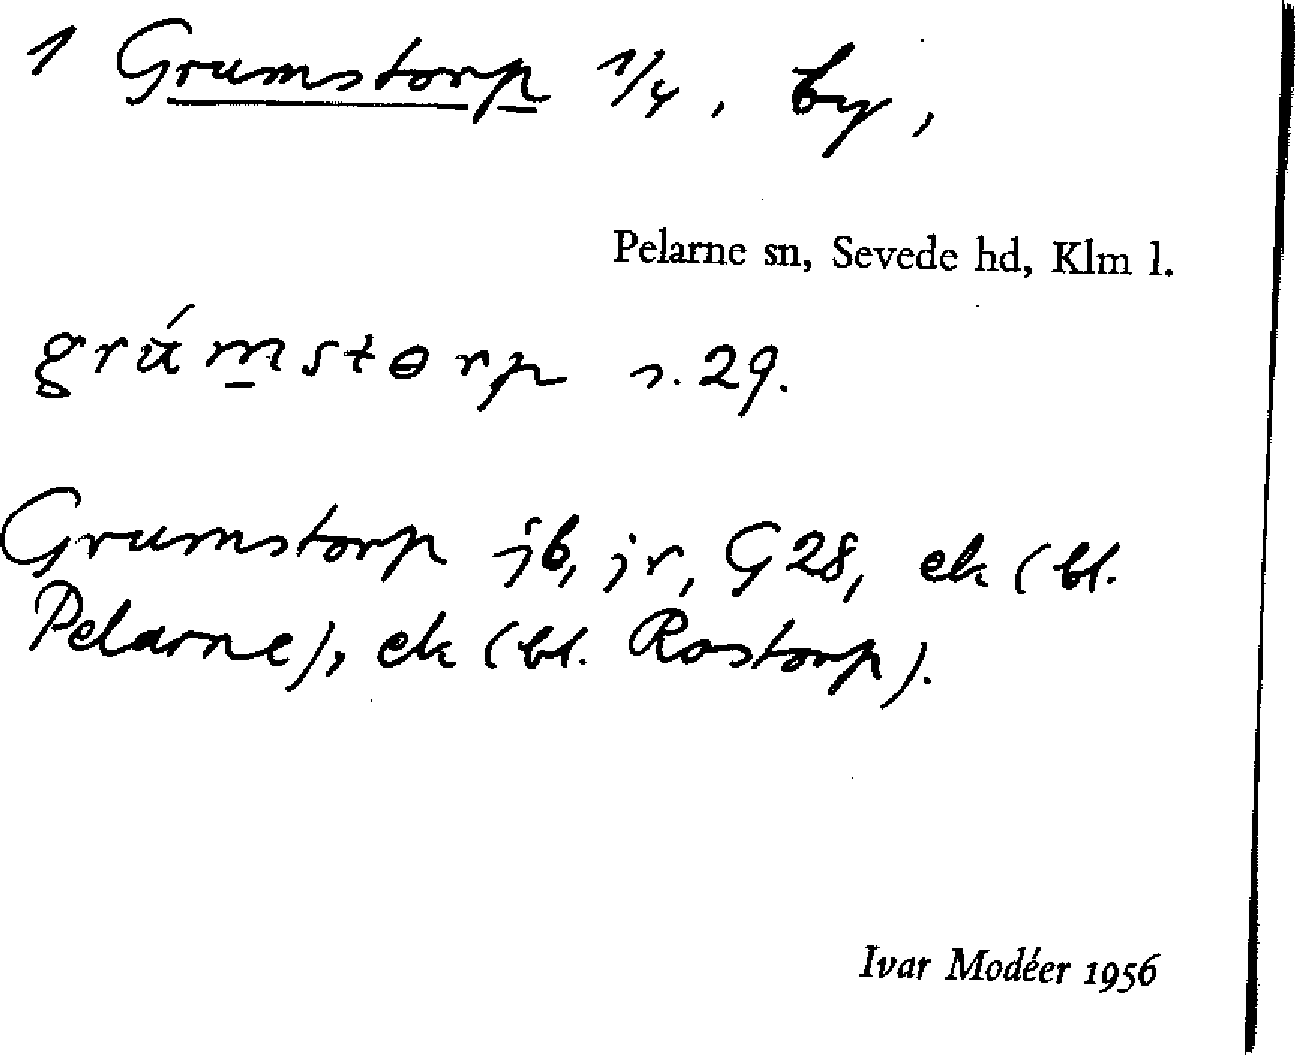 1 Grumstorp 1/4, by,
Pelarne sn, Sevede hd, Klm l.
grúm̱stɵrp s. 29.
Grumstorp jb, jr, G 28, ek (bl.
Pelarne), ek (bl. Rostorp).
Ivar Modéer 1956